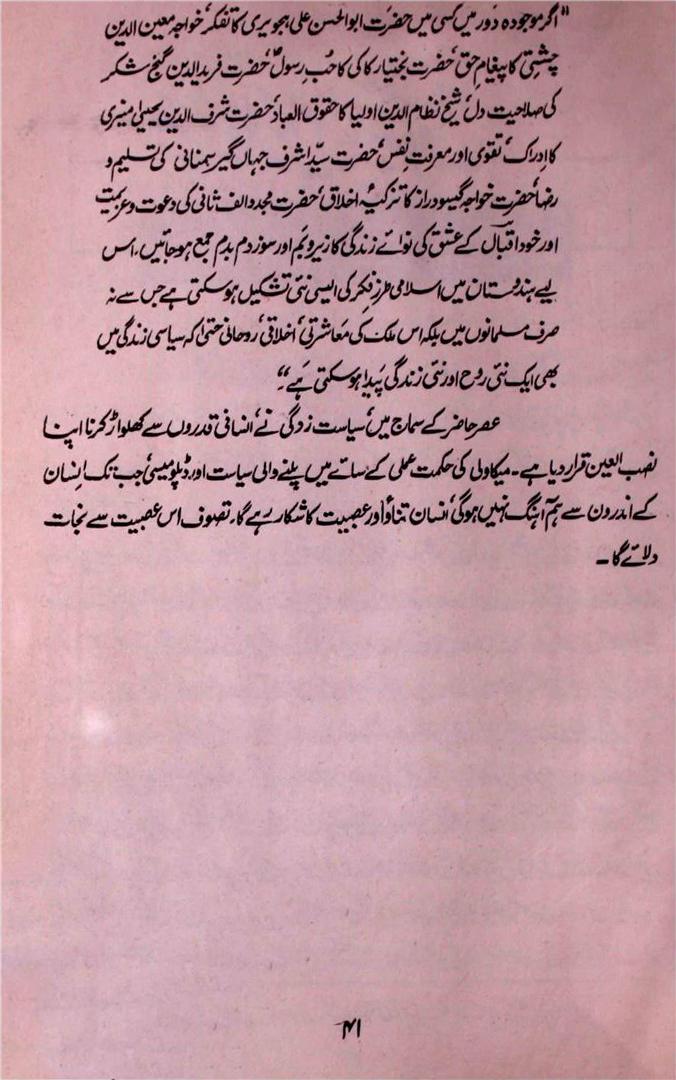 "اگر موجودہ دور میں کسی میں حضرت ابوالحسن علی ہجویری کا تفکر، خواجہ معین الدین
چشتی کا پیغامِ حق، حضرت بختیار کاکی کا حُب رسولؐ، حضرت فرید الدین گنج شکر
کی صلاحیت دل، شیخ نظام الدین اولیا کا حقوق العباد، حضرت شرف الدین یحییٰ منیری
کا ادراک، تقویٰ اور معرفت نفس، حضرت سیّد اشرف جہاں گیر سمنانی کی تسلیم و
رضا، حضرت خواجہ گیسو دراز کا تزکیۂ اخلاق، حضرت مجدد الف ثانی کی دعوت و عزیمت
اور خود اقبال کے عشق کی نوائے زندگی کا زیر و بم اور سوز دم بدم جمع ہو جائیں۔ اس
لیے ہندوستان میں اسلامی طرزِ فکر کی ایسی نئی تشکیل ہو سکتی ہے جس سے نہ
صرف مسلمانوں میں بلکہ اس ملک کی معاشرتی، اخلاقی، روحانی حتیٰ کہ سیاسی زندگی میں
بھی ایک نئی روح اور نئی زندگی پَیدا ہو سکتی ہَے"۔
عصر حاضر کے سماج میں، سیاست زدگی نے، انسانی قدروں سے کھلواڑ کرنا اپنا
نصب العین قرار دیا ہے۔ میکاولی کی حکمت عملی کے سائے میں پلنے والی سیاست اور ڈپلومیسی، جب تک انسان
کے اندرون سے ہم آہنگ نہیں ہوگی، انسان تناؤ اور عصبیت کا شکار رہے گا۔ تصوف اس عصبیت سے نجات
دلائے گا۔
۴۱